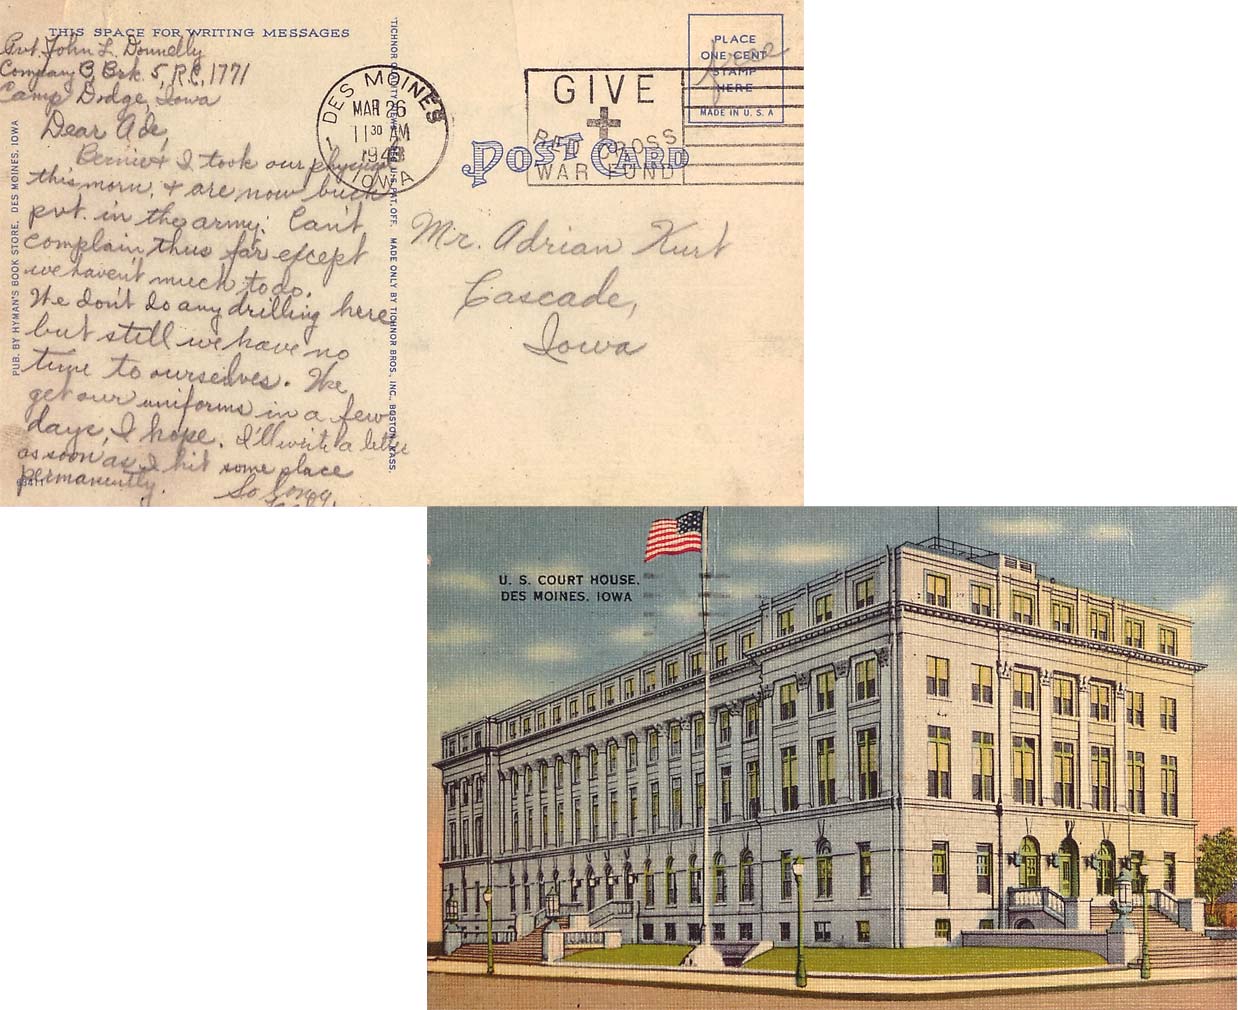 THIS SPACE FOR WRITING MESSAGES
Pvt. John L. Donnelly
Company B, Brk. 5, R.C. 1771
Camp Dodge, Iowa
Dear Ade,
Bernie & I took our physical
this morn, & are now buck
pvt. in the army. Can't
complain thus far except
we haven't much to do.
We don't do any drilling here
but still we have no
time to ourselves. We
get our uniforms in a few
days, I hope. I'll write a letter
as soon as I hit some place
permanently.
So long,
PUB. BY HYMAN'S BOOK STORE, DES MOINES, IOWA
MADE ONLY BY TICHNOR BROS., INC., BOSTON, MASS.
DES MOINES
MAR 26
11 30 AM
1943
IOWA
GIVE
RED CROSS
WAR FUND
PLACE
ONE CENT
STAMP
HERE
MADE IN U. S. A
free
POST CARD
Mr. Adrian Kurt
Cascade,
Iowa
U. S. COURT HOUSE,
DES MOINES, IOWA